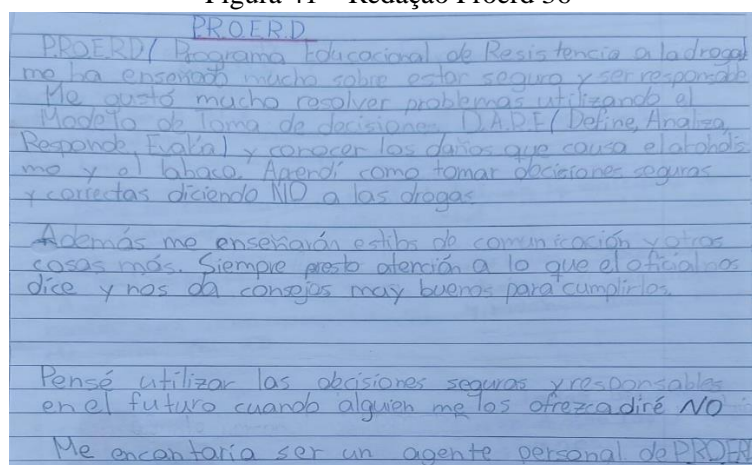 Figura 41 – Redação Proerd 36
P.R.O.E.R.D
PROERD/ Programa Educacional de Resistencia a la drogas
me ha enseñado mucho sobre estar seguro y ser responsable
Me gustó mucho resolver problemas utilizando el
Modelo de Toma de decisiones D.A.R.E/ Define, Analiza,
Responde, Evalúa) y conocer los daños que causa el alcoholis
mo y el tabaco. Aprendí como tomar decisiones seguras
y correctas diciendo NO a las drogas
Además me enseñarán estilos de comunicación y otras
cosas más. Siempre presto atención a lo que el oficial nos
dice y nos da consejos muy buenos para cumplirlos.
Pensé utilizar las decisiones seguras y responsables
en el futuro cuando alguien me los ofrezca diré NO
Me encantaría ser un agente personal de PROER